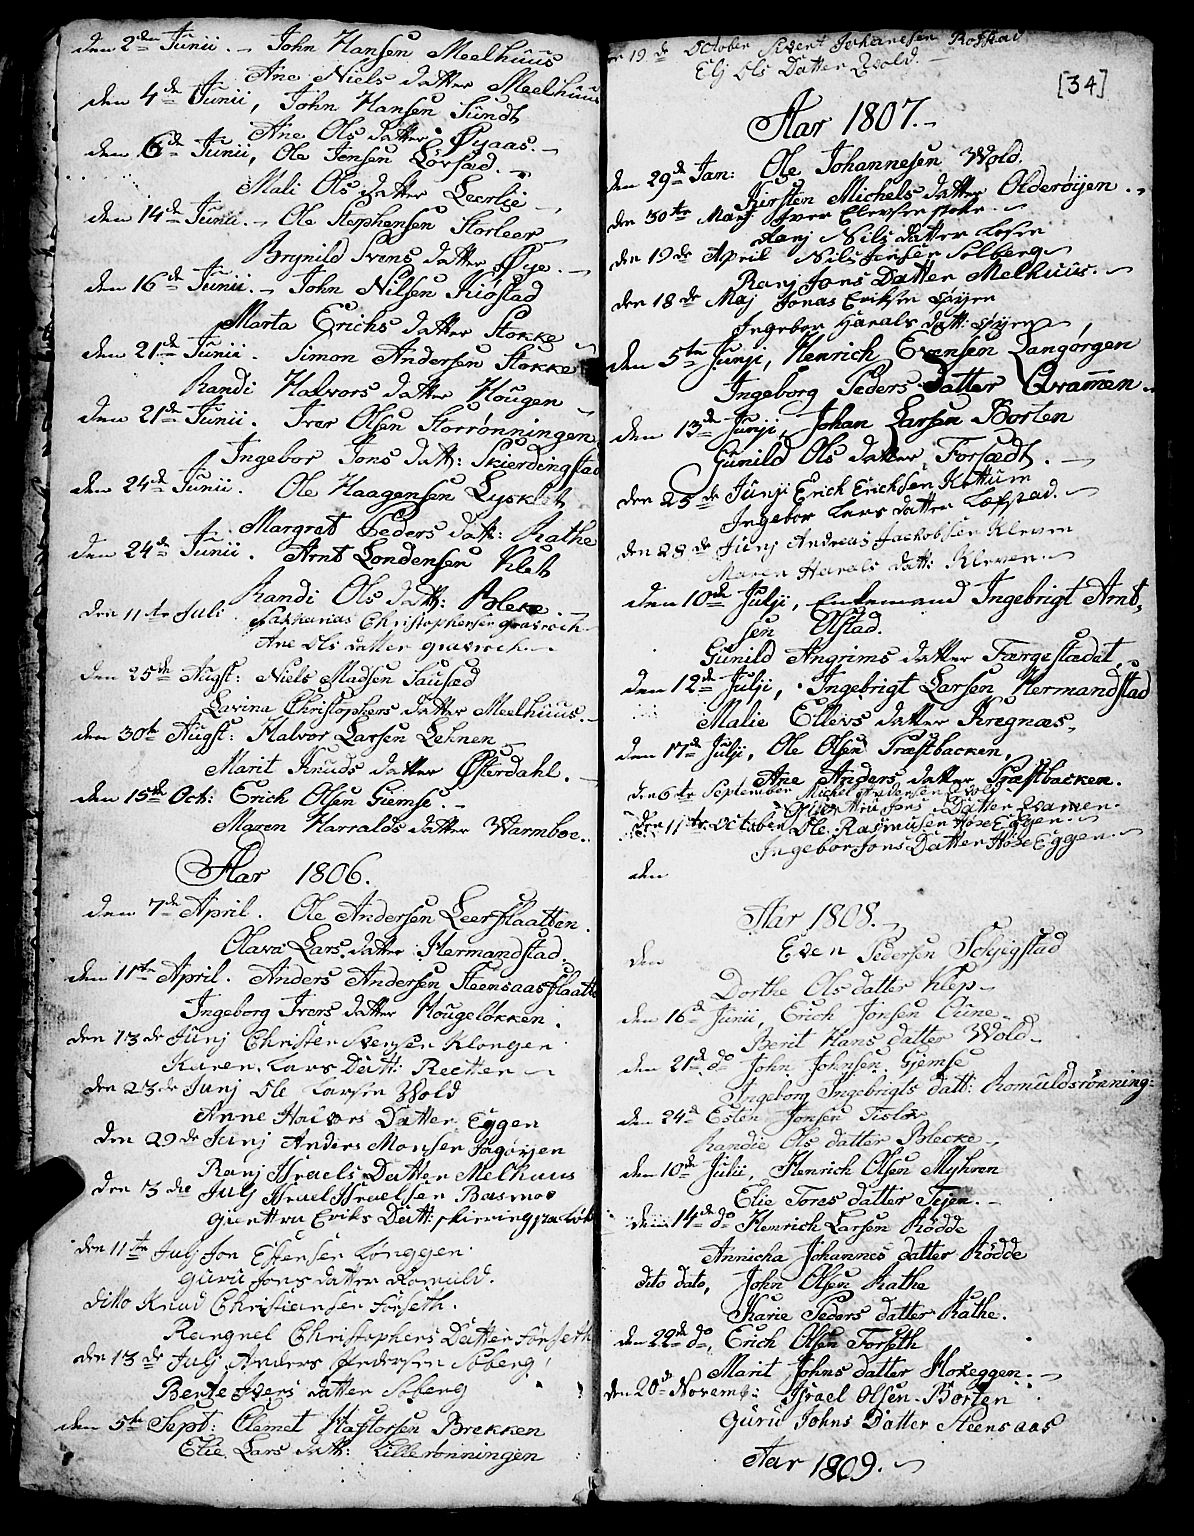 den 2den Junii. - John Hansen Meelhuus
Ane Niels datter Meelhuus
den 4de Junii, John Hansen Sundt
Ane Ols datter Øyaas. -
den 6de Junii, Ole Jensen Lørsæd. -
Mali Ols datter Leerlie -
den 14de Junii. - Ole Stephensen Storleer
Brynild Svens datter Øye. -
den 16de Junii. - John Nilsen Kiøstad
Marta Erichs datter Stokke -
den 21de Junii. Simon Andersen Stokke
Randi Halvors datter Hougen -
den 21de Junii. Iver Olsen Storrønningen
Ingebor Jons datt: Skierdingstad
den 24de Junii. Ole Haagensen Lysklet
Margrat Peders datt: Rathe
den 24de Junii. Arnt Londensen Klet
Randi Ols datt: Bleke. -
den 11te Juli Zakkarias Christophersen gravroch
Ane Ols datter gravroch. -
den 25de Augst: Niels Madsen Sausæd
Lavina Christophers datter Meelhuus. -
den 30te Augst: Halvor Larsen Lehnen
Marit Knuds datter Østerdahl. -
den 15de Oct: Erich Olsen Giemse. -
Maren Harralds datter Warmboe.
Aar 1806.
den 7de April. Ole Andersen Leerflaatten.
Olava Lars datter Hermandstad.
den 11te April. Anders Andersen Steensaasflaatte
Ingeborg Ivers datter Hougeløkken.
den 13de Junj Christen Svensen Klongen
Karen Lars Datt: Reetten -
den 23de Junj Ole Larsen Wold
Anne Halvors Datter Eggen
den 29de Junj Anders Monsen fagørjen
Ranj Israels Datter Melhuus
den 3die Julj Israel Israelsen Basmoe
Guruttru Eriks Datt:
den 11te Julj Jon Estensen Lønggen
Guru Jons datter Romuld.
ditto Knud Christiansen Forseth.
Rangnel Christophers Datter Forseth
den 13de Julj Anders Pedersen Søberg
Berte Ivers datter Søberg
den 5te Sept: Clemet Hastorsen Brekken
Elie Lars datt: Lillerønningen
19de October Sivert Johanesen Rofstad
Elj Ols Datter Wold. -
[34]
Aar 1807. -
den 29de Jan: Ole Johannesen Wold.
Kirsten Michels datter Olderøijen. -
den 30te Marj Iver Elevsen stoke. -
Ranj Nils datter Losen
den 19de April Nils Jensen Solberg -
Ranj Jons Datter Melhuus. -
den 18de Maj Jonas Eriksen Øyen
Ingebor Harals datt: Øyen -
den 5te Junji, Henrich Evensen Langørgen
Ingeborg Peders datter Qvammen -
den 13de Junji, Johan Larsen Borten
Gunild Ols datter, Forsædt. -
den 25de Junji Erick Ericksen Kattum
Ingebor Lars datter Løfstad. -
den 28de Junj Andreas Jackobsen Kleven
Maren Harals datt: Kleven. -
den 10de Julji, Enkemand Ingebrigt Arnt,
sen Ølstad.
Gunild Angrims datter Færgestædet.
den 12de Julji, Ingebrigt Larsen Hermandstad
Malie Ellevs datter Kregnæs,
den 17de Julji, Ole Olsen Præstbacken,
Ane Anders datter Præstbacken.
den 6te September Michel Andersen Evold
Jons Datter Qvamen.
den 11te October Ole Rasmusen Høxeggen. -
Ingebor Jons Datter Høxeggen. -
den
Aar 1808. -
den Even Pedersen Schjegstad
Dorthe Ols datter Klep -
den 16de Junii, Erich Jonsen Ouine -
Berit Hans datter Wold. -
den 21de do John Johnsen Gjemse
Ingeborg Ingebrigts datt: Romuldsrønning:
den 24de Esten Jonsen Tislør
Randie Ols datter Blecke -
den 10de Julii, Henrich Olsen Myhren
Elie Tores datter Tejen. -
den 14de do Henrich Larsen Rødde
Annicha Johannes datter Rødde
dito dato, John Olsen Rathe
Karie Peders datter Rathe.
den 22de do, Erich Olsen Forseth
Marit Johns datter Hoxeggen. -
den 20de Novemb: Israel Olsen Borten
Guru Johns Datter Steensaas
Aar 1809. -